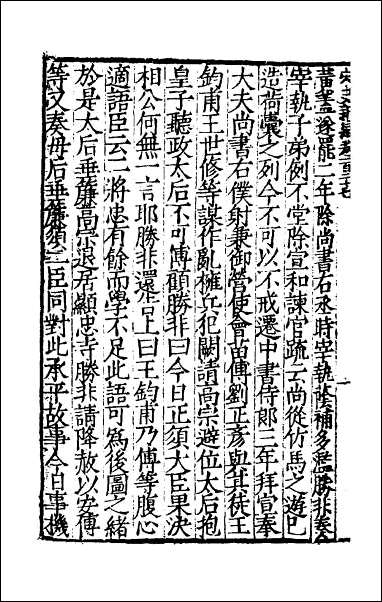 宋史新編卷一百二十七
黃蓋遂罷二年除尚書右丞時宰執廕補多濫勝非奏今
宰執子弟例不堂除宣和諫官疏云尚從竹馬之遊已
造荷囊之列今不可以不戒遷中書侍郎三年拜宣奉
大夫尚書右僕射兼御營使會苗傅劉正彥與其徒王
鈞甫王世修等謀作亂擁兵犯闕請高宗避位太后抱
皇子聽政太后不可傅顧勝非曰今日正須大臣果決
相公何無一言耶勝非還告上曰王鈞甫乃傅等腹心
適語臣云二將忠有餘而學不足此語可為後圖之緒
於是大后垂簾高宗退居顯忠寺勝非請降赦以安傅
等又奏母后垂簾須二臣同對此承平故事今日事機